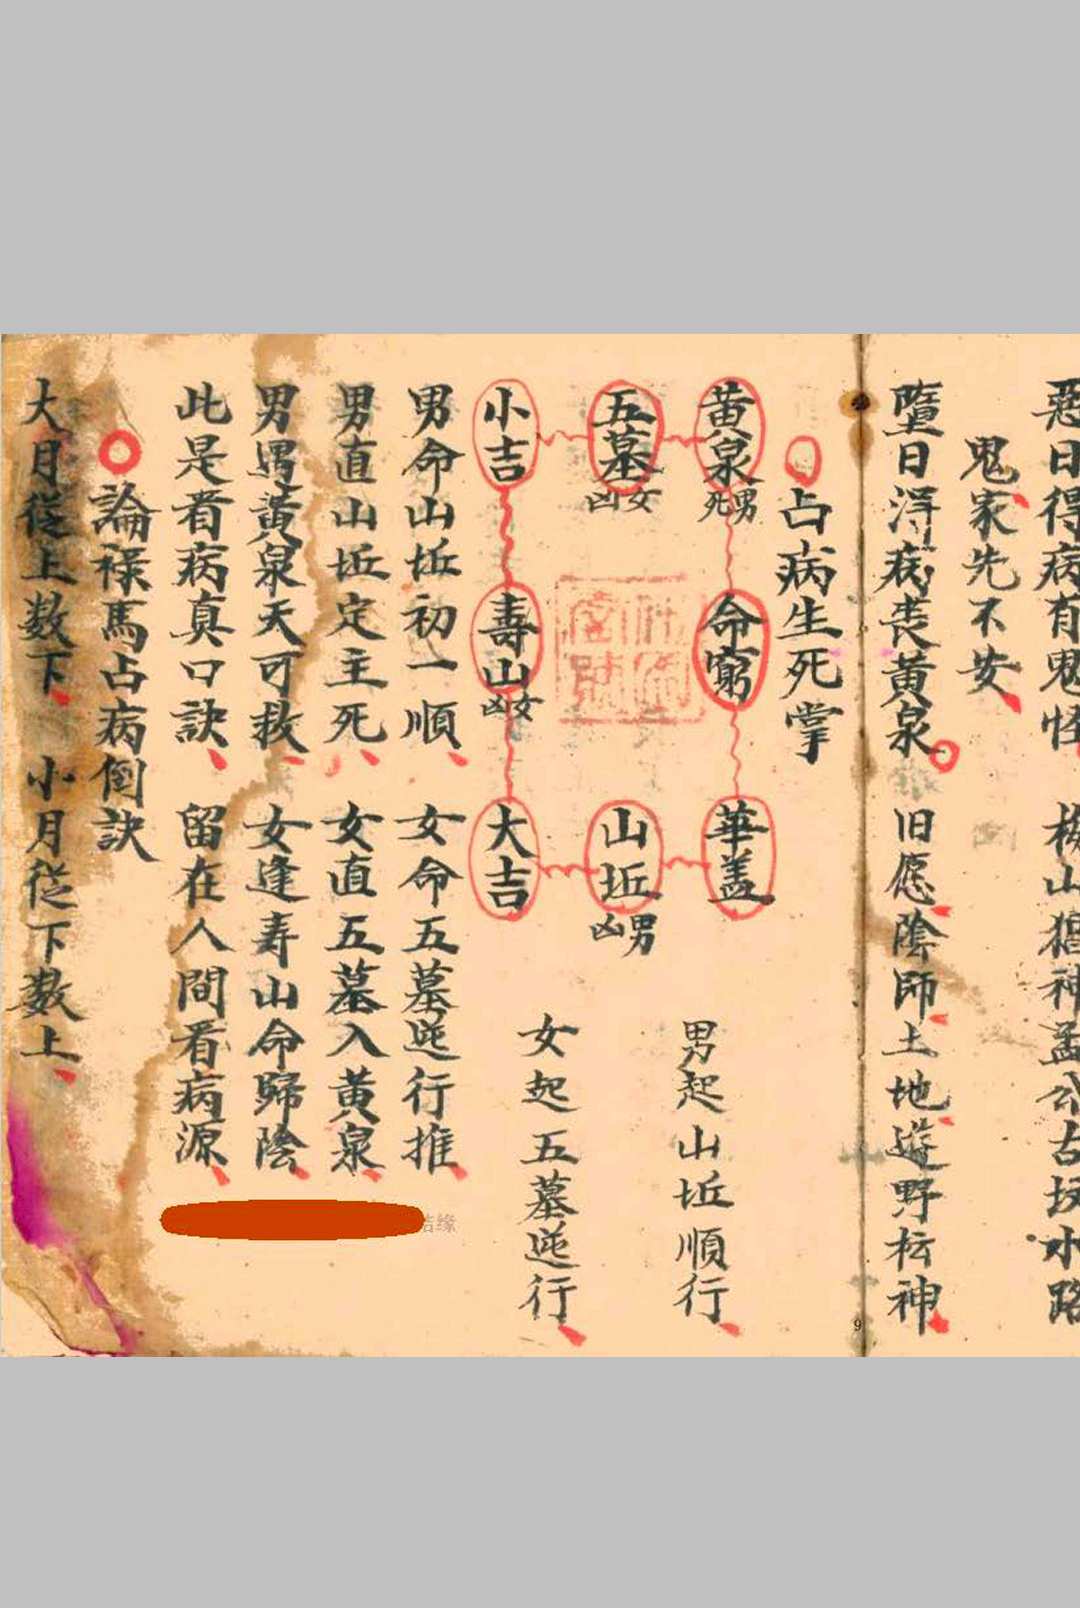 惡日得病有鬼怪
鬼家先不安
日得病丧黄泉
旧愿陰師土地遊野坛神
占病生死掌
黄泉
男死
命窮
華盖
五墓
女凶
山坵
男凶
小吉
壽山
女凶
大吉
男起山坵順行
女起五墓逆行
男命山坵初一順
女命五墓逆行推
男直山坵定主死
女直五墓入黄泉
男遇黃泉天可救
女逢寿山命歸陰
此是看病真口訣
留在人間看病源
論祿馬占病倒訣
大月從上数下
小月從下数上
结缘
9